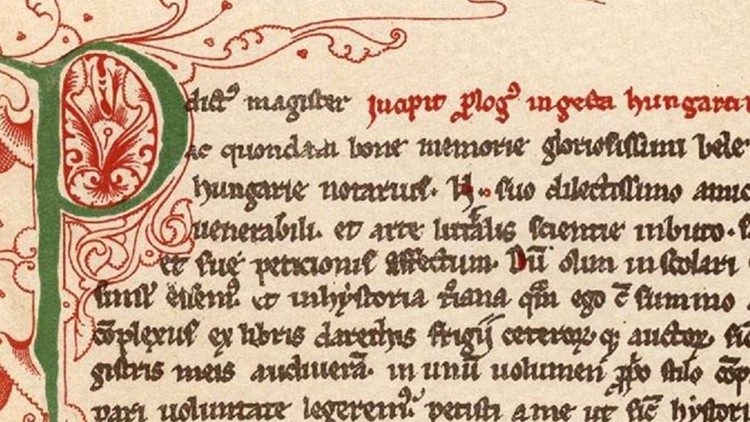 P dict⁹ magister Incipit p̄log⁹ in gesta hungarū
ac quondam bone memorie gloriosissimi bele
hungarie notarius. N. suo dilectissimo amico
uenerabili. et arte litt̄alis scientie inbuto.
et sue peticionis effectum. Dū olim in scolari
simul essem⁹. et in hystoria t̄iana qm̄ ego c̄ summo
cōplexus ex libris darethis frigii ceteroꝝ qꝫ auctoꝝ. sic
gistris meis audiuerā. in unū uolumen p̄po stilo cōp
pari uoluntate legerem⁹. petisti a me ut sic̄ hystori